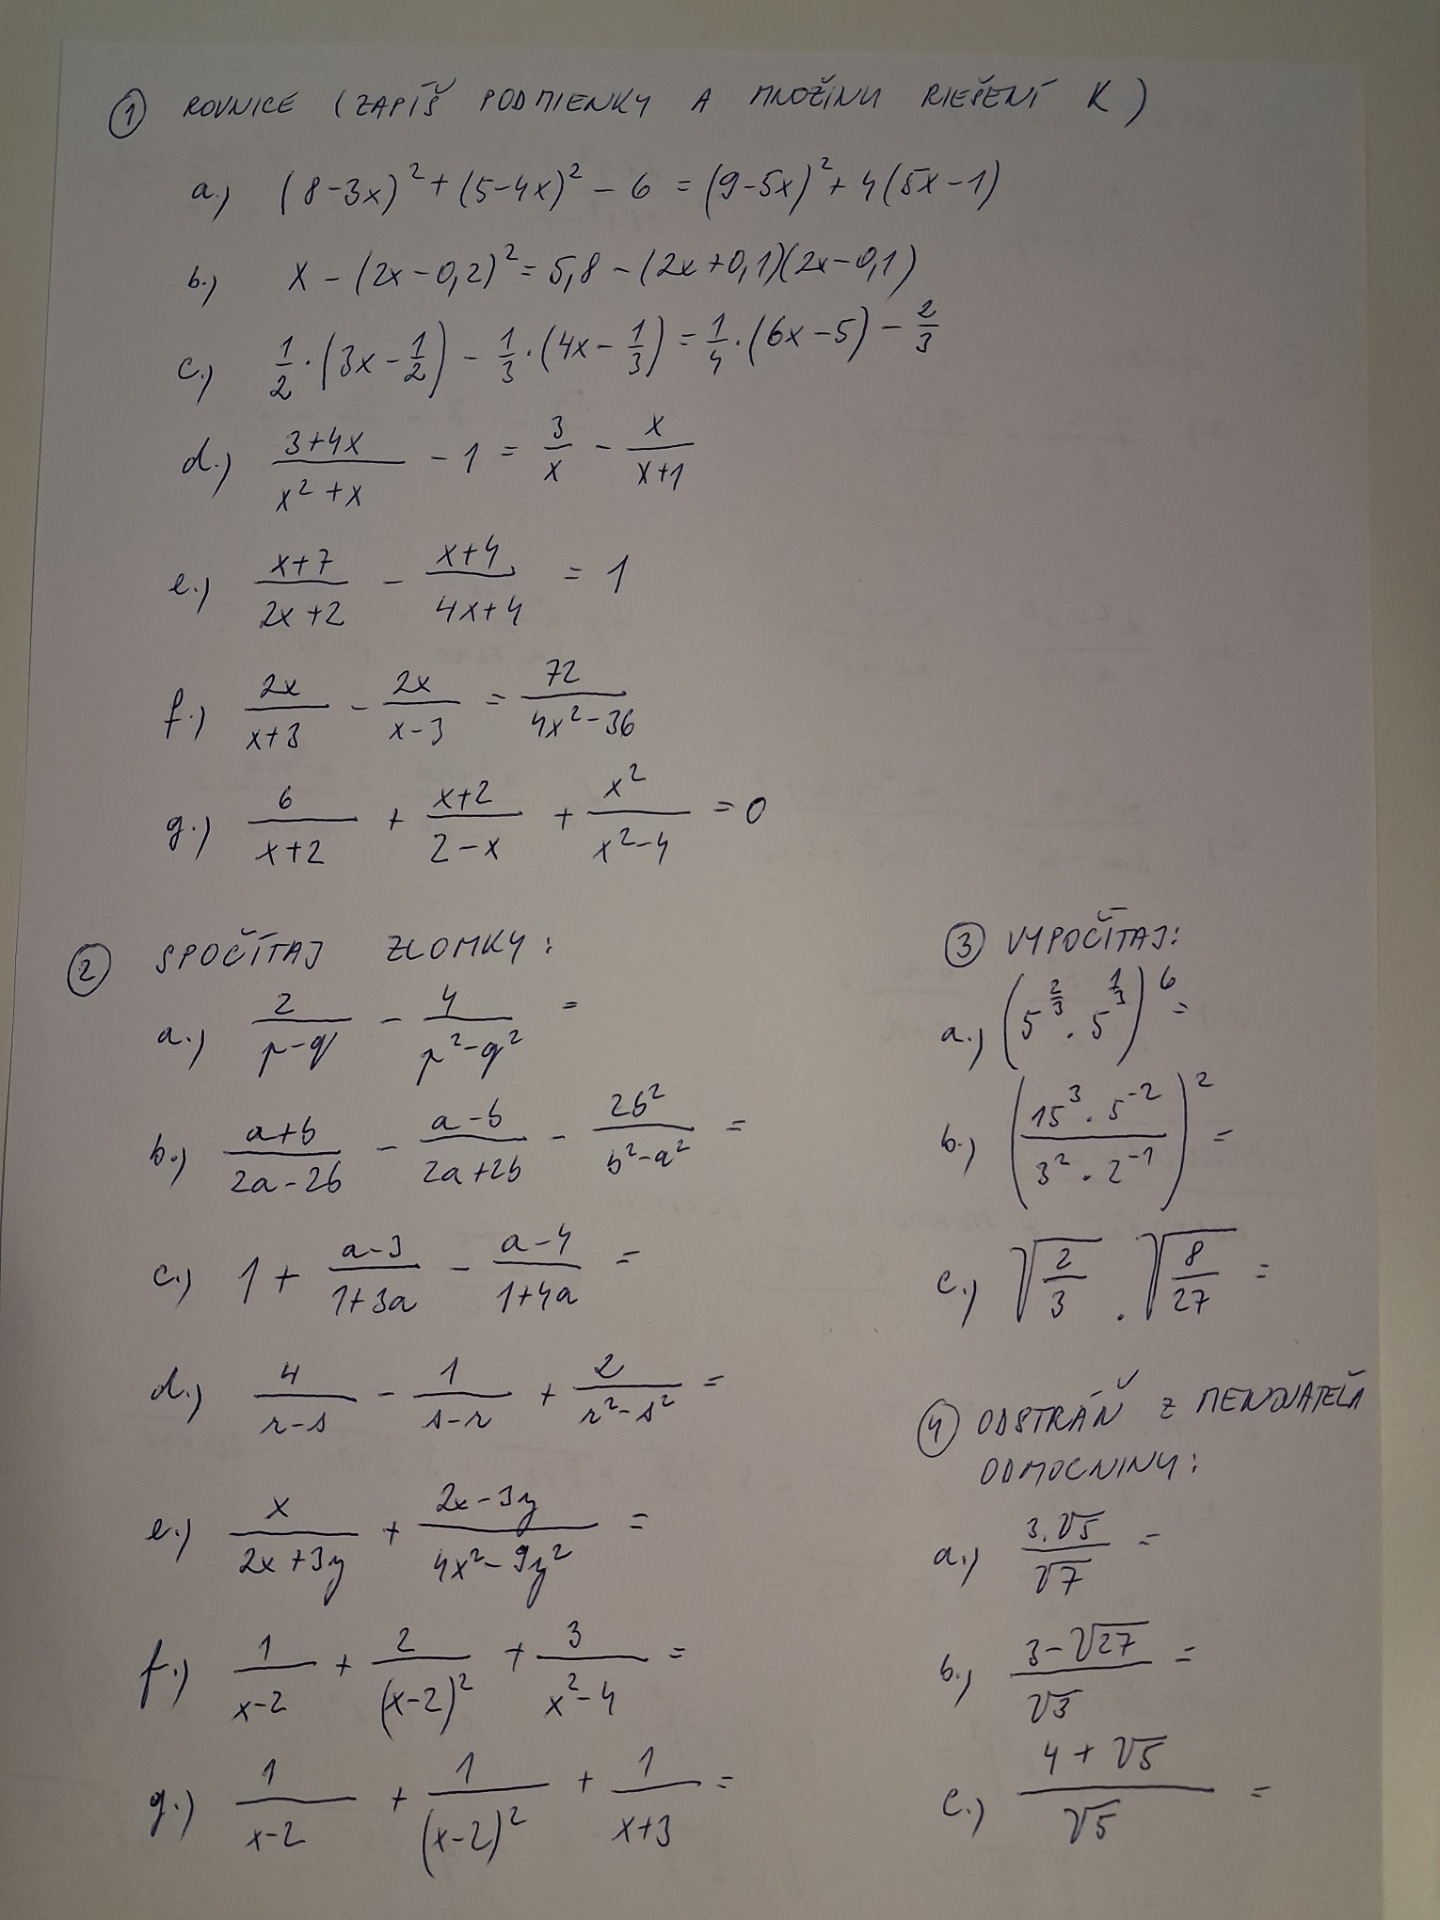 ① ROVNICE (ZAPÍŠ PODMIENKY A MNOŽINU RIEŠENÍ K)
a.) (8-3x)² + (5-4x)² - 6 = (9-5x)² + 4(5x-1)
b.) x - (2x-0,2)² = 5,8 - (2x+0,1)(2x-0,1)
c.) 1/2 · (3x - 1/2) - 1/3 · (4x - 1/3) = 1/4 · (6x-5) - 2/3
d.) (3+4x)/(x²+x) - 1 = 3/x - x/(x+1)
e.) (x+7)/(2x+2) - (x+4)/(4x+4) = 1
f.) 2x/(x+3) - 2x/(x-3) = 72/(4x²-36)
g.) 6/(x+2) + (x+2)/(2-x) + x²/(x²-4) = 0
② SPOČÍTAJ ZLOMKY:
a.) 2/(p-q) - 4/(p²-q²) =
b.) (a+b)/(2a-2b) - (a-b)/(2a+2b) - 2b²/(b²-a²) =
c.) 1 + (a-3)/(1+3a) - (a-4)/(1+4a) =
d.) 4/(r-s) - 1/(s-r) + 2/(r²-s²) =
e.) x/(2x+3y) + (2x-3y)/(4x²-9y²) =
f.) 1/(x-2) + 2/(x-2)² + 3/(x²-4) =
g.) 1/(x-2) + 1/(x-2)² + 1/(x+3) =
③ VYPOČÍTAJ:
a.) (5^(2/3) · 5^(1/3))⁶ =
b.) ((15³ · 5⁻²)/(3² · 2⁻¹))² =
c.) √(2/3) · √(8/27) =
④ ODSTRÁŇ Z MENOVATEĽA
ODMOCNINY:
a.) (3·√5)/√7 =
b.) (3-√27)/√3 =
c.) (4+√5)/√5 =